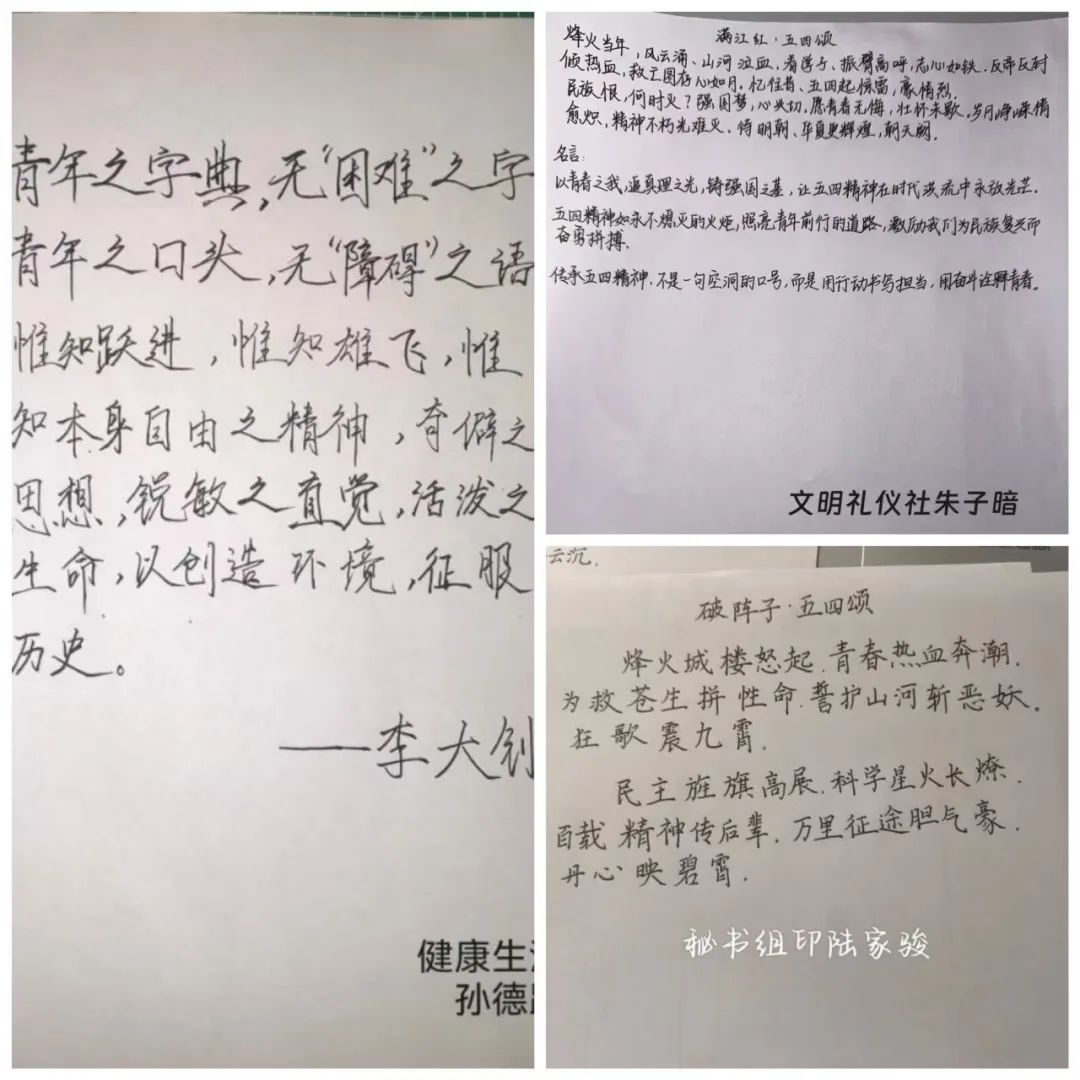 青年之字典,无“困难”之字
青年之口头,无“障碍”之语
惟知跃进,惟知雄飞,惟
知本身自由之精神,奇僻之
思想,锐敏之直觉,活泼之
生命,以创造环境,征服
历史。
——李大钊
健康生
孙德
满江红·五四颂
烽火当年,风云涌、山河泣血,看学子、振臂高呼,志心如铁.反帝反封
倾热血,救亡图存心如月.忆往昔、五四起惊雷,豪情烈.
民族恨,何时灭?强国梦,心头切.愿青春无悔,壮怀未歇.岁月峥嵘情
愈炽,精神不朽光难灭.待明朝、华夏更辉煌,朝天阙.
名言:
以青春之我,追真理之光,铸强国之基,让五四精神在时代洪流中永放光芒.
五四精神如永不熄灭的火炬,照亮青年前行的道路,激励我们为民族复兴而
奋勇拼搏.
传承五四精神.不是一句空洞的口号,而是用行动书写担当,用奋斗诠释青春。
文明礼仪社朱子暗
云沉.
破阵子·五四颂
烽火城楼怒起.青春热血奔潮.
为救苍生拼性命.誓护山河斩恶妖。
狂歌震九霄.
民主旌旗高展.科学星火长燎.
百载精神传后辈.万里征途胆气豪.
丹心映碧霄.
秘书组印陆家骏